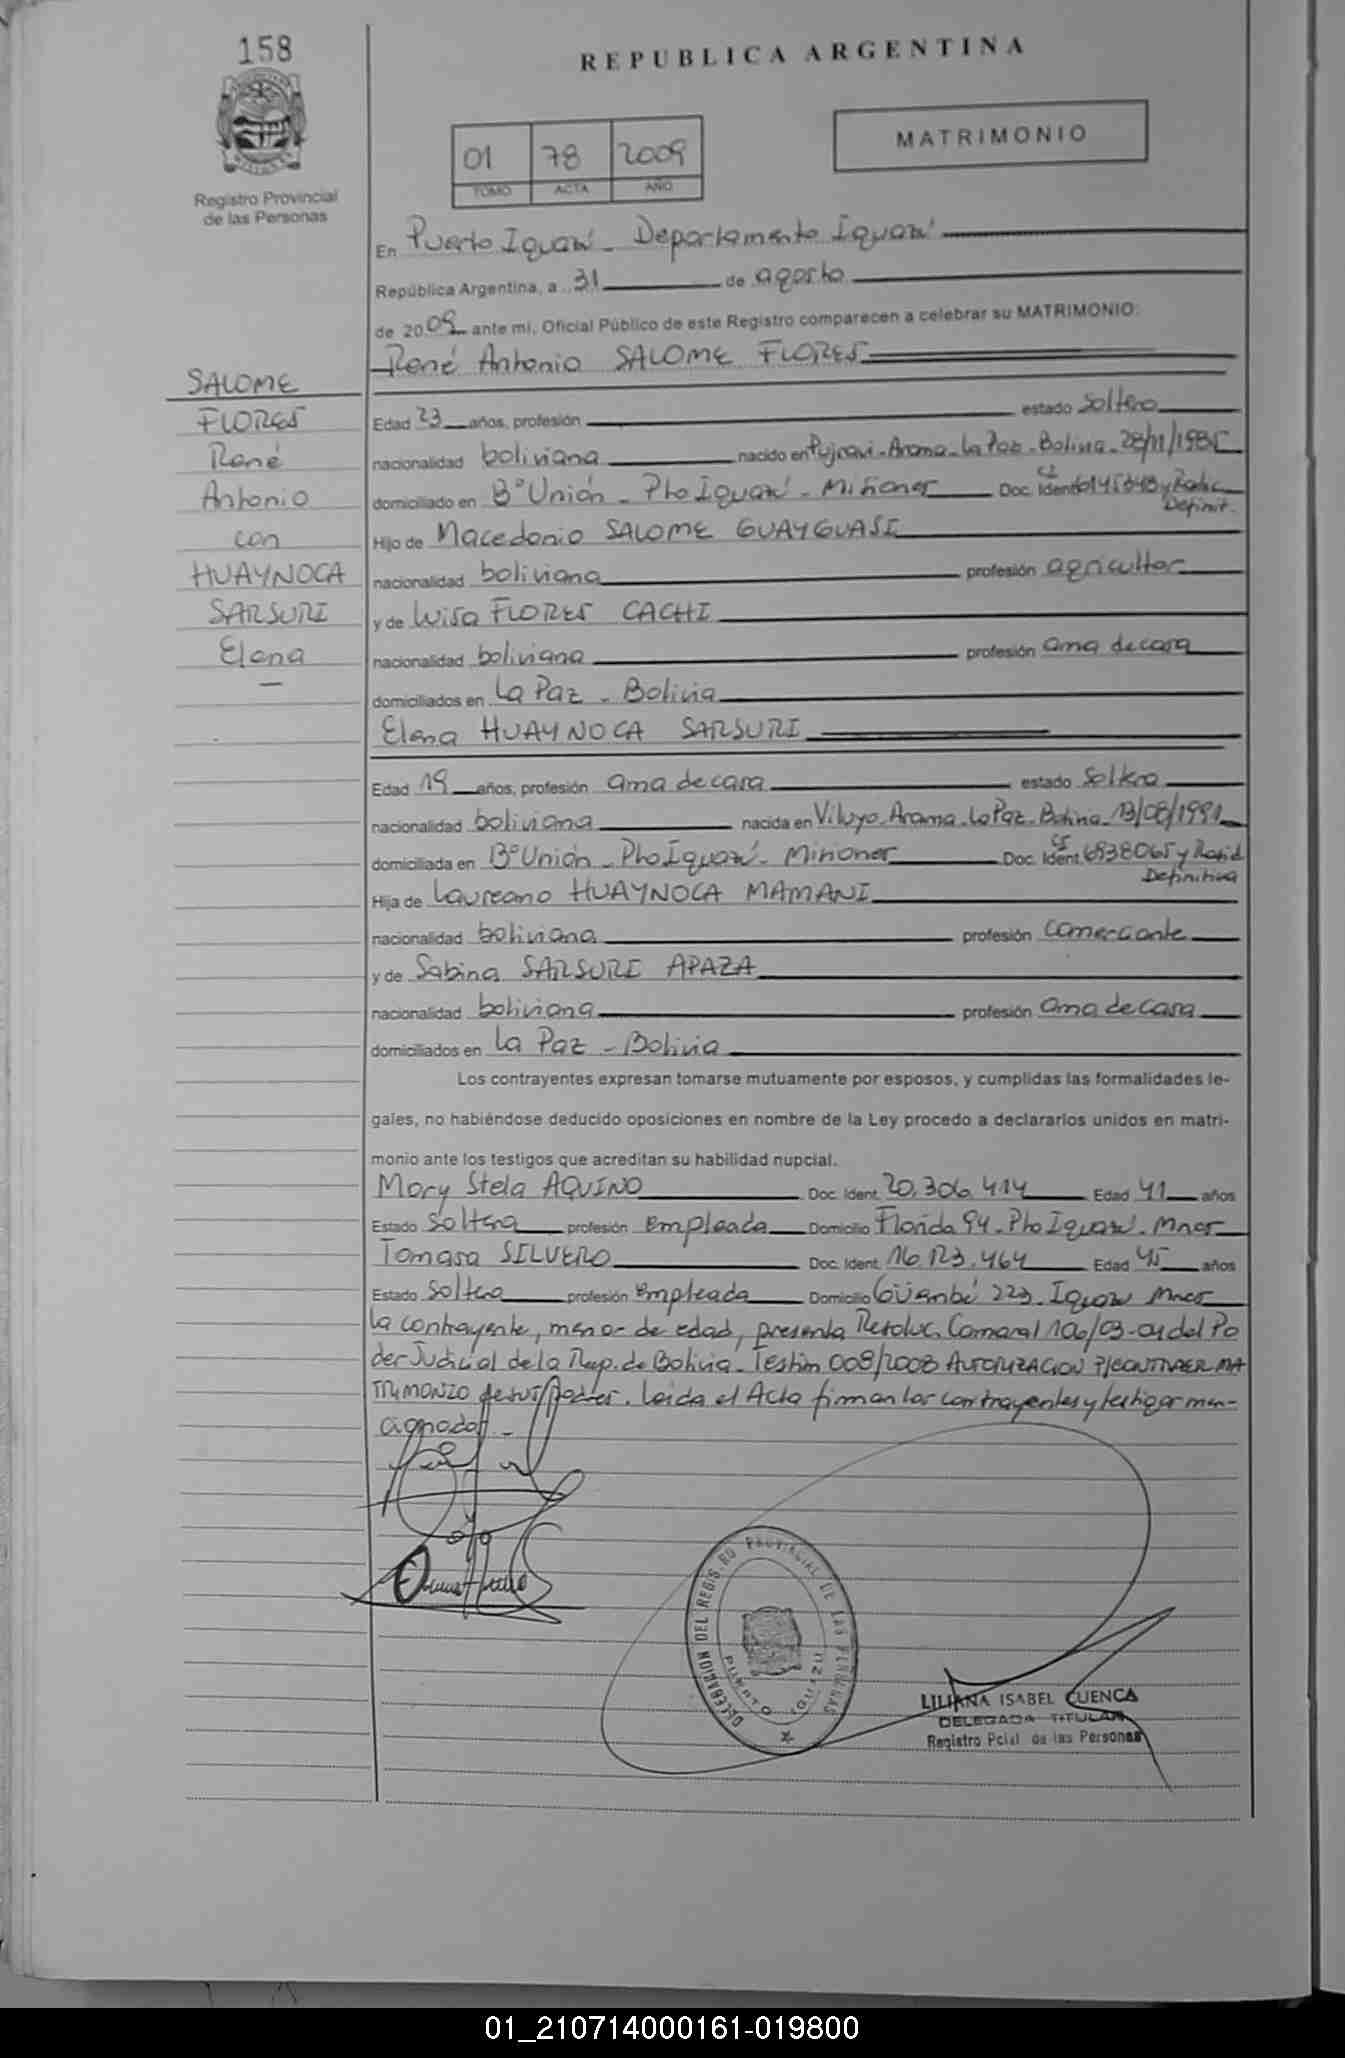 158
REPUBLICA ARGENTINA
Registro Provincial
de las Personas
01 78 2009
TOMO ACTA AÑO
MATRIMONIO
En Puerto Iguazú - Departamento Iguazú
República Argentina, a 31 de agosto
de 2009 ante mi, Oficial Público de este Registro comparecen a celebrar su MATRIMONIO:
René Antonio SALOME FLORES
SALOME
FLORES
René
Antonio
con
HUAYNOCA
SARSURI
Elena
Edad 23 años, profesión estado Soltero
nacionalidad boliviana nacido en Aroma - La Paz - Bolivia - 28/11/1985
domiciliado en B° Unión - Pto Iguazú - Misiones Doc. Ident. CI y Radic
Definit.
Hijo de Macedonio SALOME GUAYGUASI
nacionalidad boliviana profesión agricultor
y de Luisa FLORES CACHI
nacionalidad boliviana profesión ama de casa
domiciliados en La Paz - Bolivia
Elena HUAYNOCA SARSURI
Edad 19 años, profesión ama de casa estado Soltera
nacionalidad boliviana nacida en Viluyo - Aroma - La Paz - Bolivia - 13/08/1991
domiciliada en B° Unión - Pto Iguazú - Misiones Doc. Ident. CI 6938065 y Radid
Definitiva
Hija de Laureano HUAYNOCA MAMANI
nacionalidad boliviana profesión comerciante
y de Sabina SARSURI APAZA
nacionalidad boliviana profesión ama de casa
domiciliados en La Paz - Bolivia
Los contrayentes expresan tomarse mutuamente por esposos, y cumplidas las formalidades le-
gales, no habiéndose deducido oposiciones en nombre de la Ley procedo a declararlos unidos en matri-
monio ante los testigos que acreditan su habilidad nupcial.
Mory Stela AQUINO Doc. Ident. 20.306.414 Edad 41 años
Estado Soltera profesión empleada Domicilio Florida 94 - Pto Iguazú - Mnes
Tomasa SILVERO Doc. Ident. 16.123.464 Edad 45 años
Estado Soltera profesión empleada Domicilio Güembé 223 - Iguazú Mnes
La contrayente, menor de edad, presenta Resoluc. Camaral 106/03-04 del Po
der Judicial de la Rep. de Bolivia - Testim 008/2008 AUTORIZACION P/CONTRAER MA
TRIMONIO de sus Padres. Leída el Acta firman los contrayentes y testigos men-
cionados.-
DELEGACION DEL REGIS. RO PROVINCIAL DE LAS PERSONAS
PUERTO IGUAZU
LILIANA ISABEL CUENCA
DELEGADA TITULAR
Registro Pcial de las Personas
01_210714000161-019800